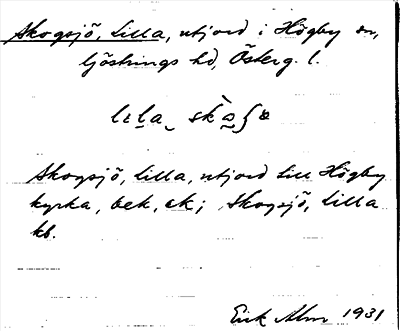 Skogsjö, Lilla, utjord i Högby sn,
Göstrings hd, Österg. l.
Skogsjö, Lilla, utjord till Högby
kyrka, bek, ek; Skogsjö, Lilla
kb.
Erik Alm 1931